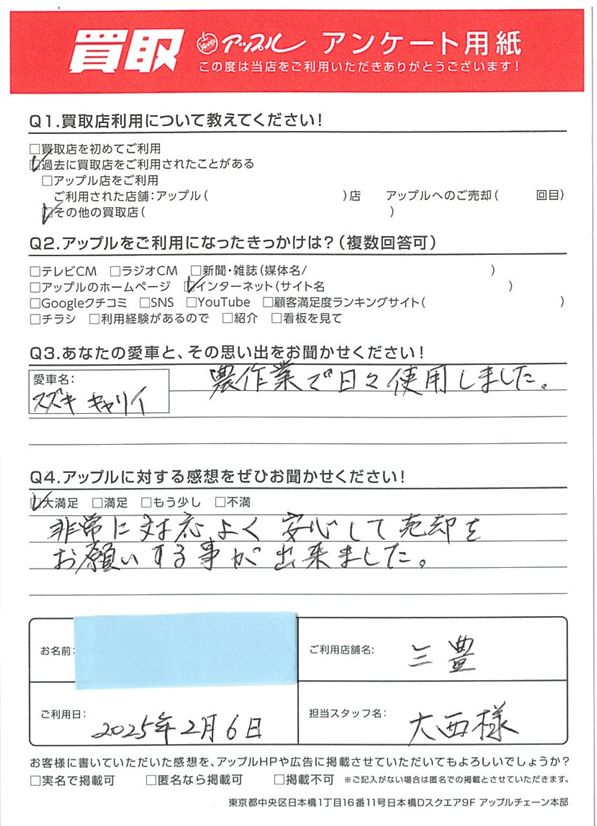 買取 アップル アンケート用紙
この度は当店をご利用いただきありがとうございます!
Q1.買取店利用について教えてください!
□買取店を初めてご利用
☑過去に買取店をご利用されたことがある
□アップル店をご利用
ご利用された店舗:アップル( )店 アップルへのご売却( 回目)
☑その他の買取店( )
Q2.アップルをご利用になったきっかけは?(複数回答可)
□テレビCM □ラジオCM □新聞・雑誌(媒体名/ )
□アップルのホームページ ☑インターネット(サイト名 )
□Googleクチコミ □SNS □YouTube □顧客満足度ランキングサイト( )
□チラシ □利用経験があるので □紹介 □看板を見て
Q3.あなたの愛車と、その思い出をお聞かせください!
愛車名:
スズキ キャリイ
農作業で日々使用しました。
Q4.アップルに対する感想をぜひお聞かせください!
☑大満足 □満足 □もう少し □不満
非常に対応よく安心して売却を
お願いする事が出来ました。
お名前:
ご利用店舗名: 三豊
ご利用日: 2025年2月6日
担当スタッフ名: 大西様
お客様に書いていただいた感想を、アップルHPや広告に掲載させていただいてもよろしいでしょうか?
□実名で掲載可 □匿名なら掲載可 □掲載不可 ※ご記入がない場合は匿名での掲載とさせていただきます。
東京都中央区日本橋1丁目16番11号日本橋Dスクエア9F アップルチェーン本部